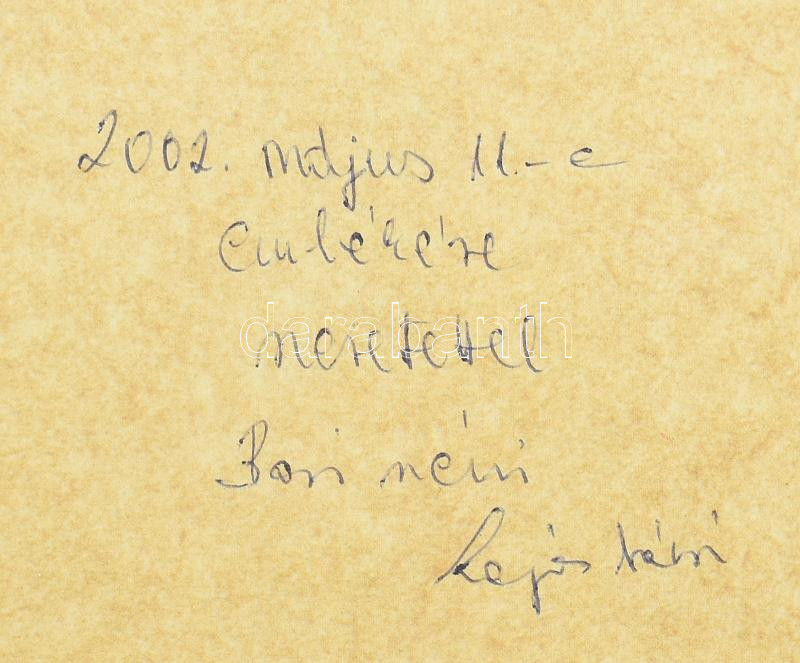 2002. május 11.-e
emlékére
darabanth
szeretettel
Bori néni
Lajos bácsi